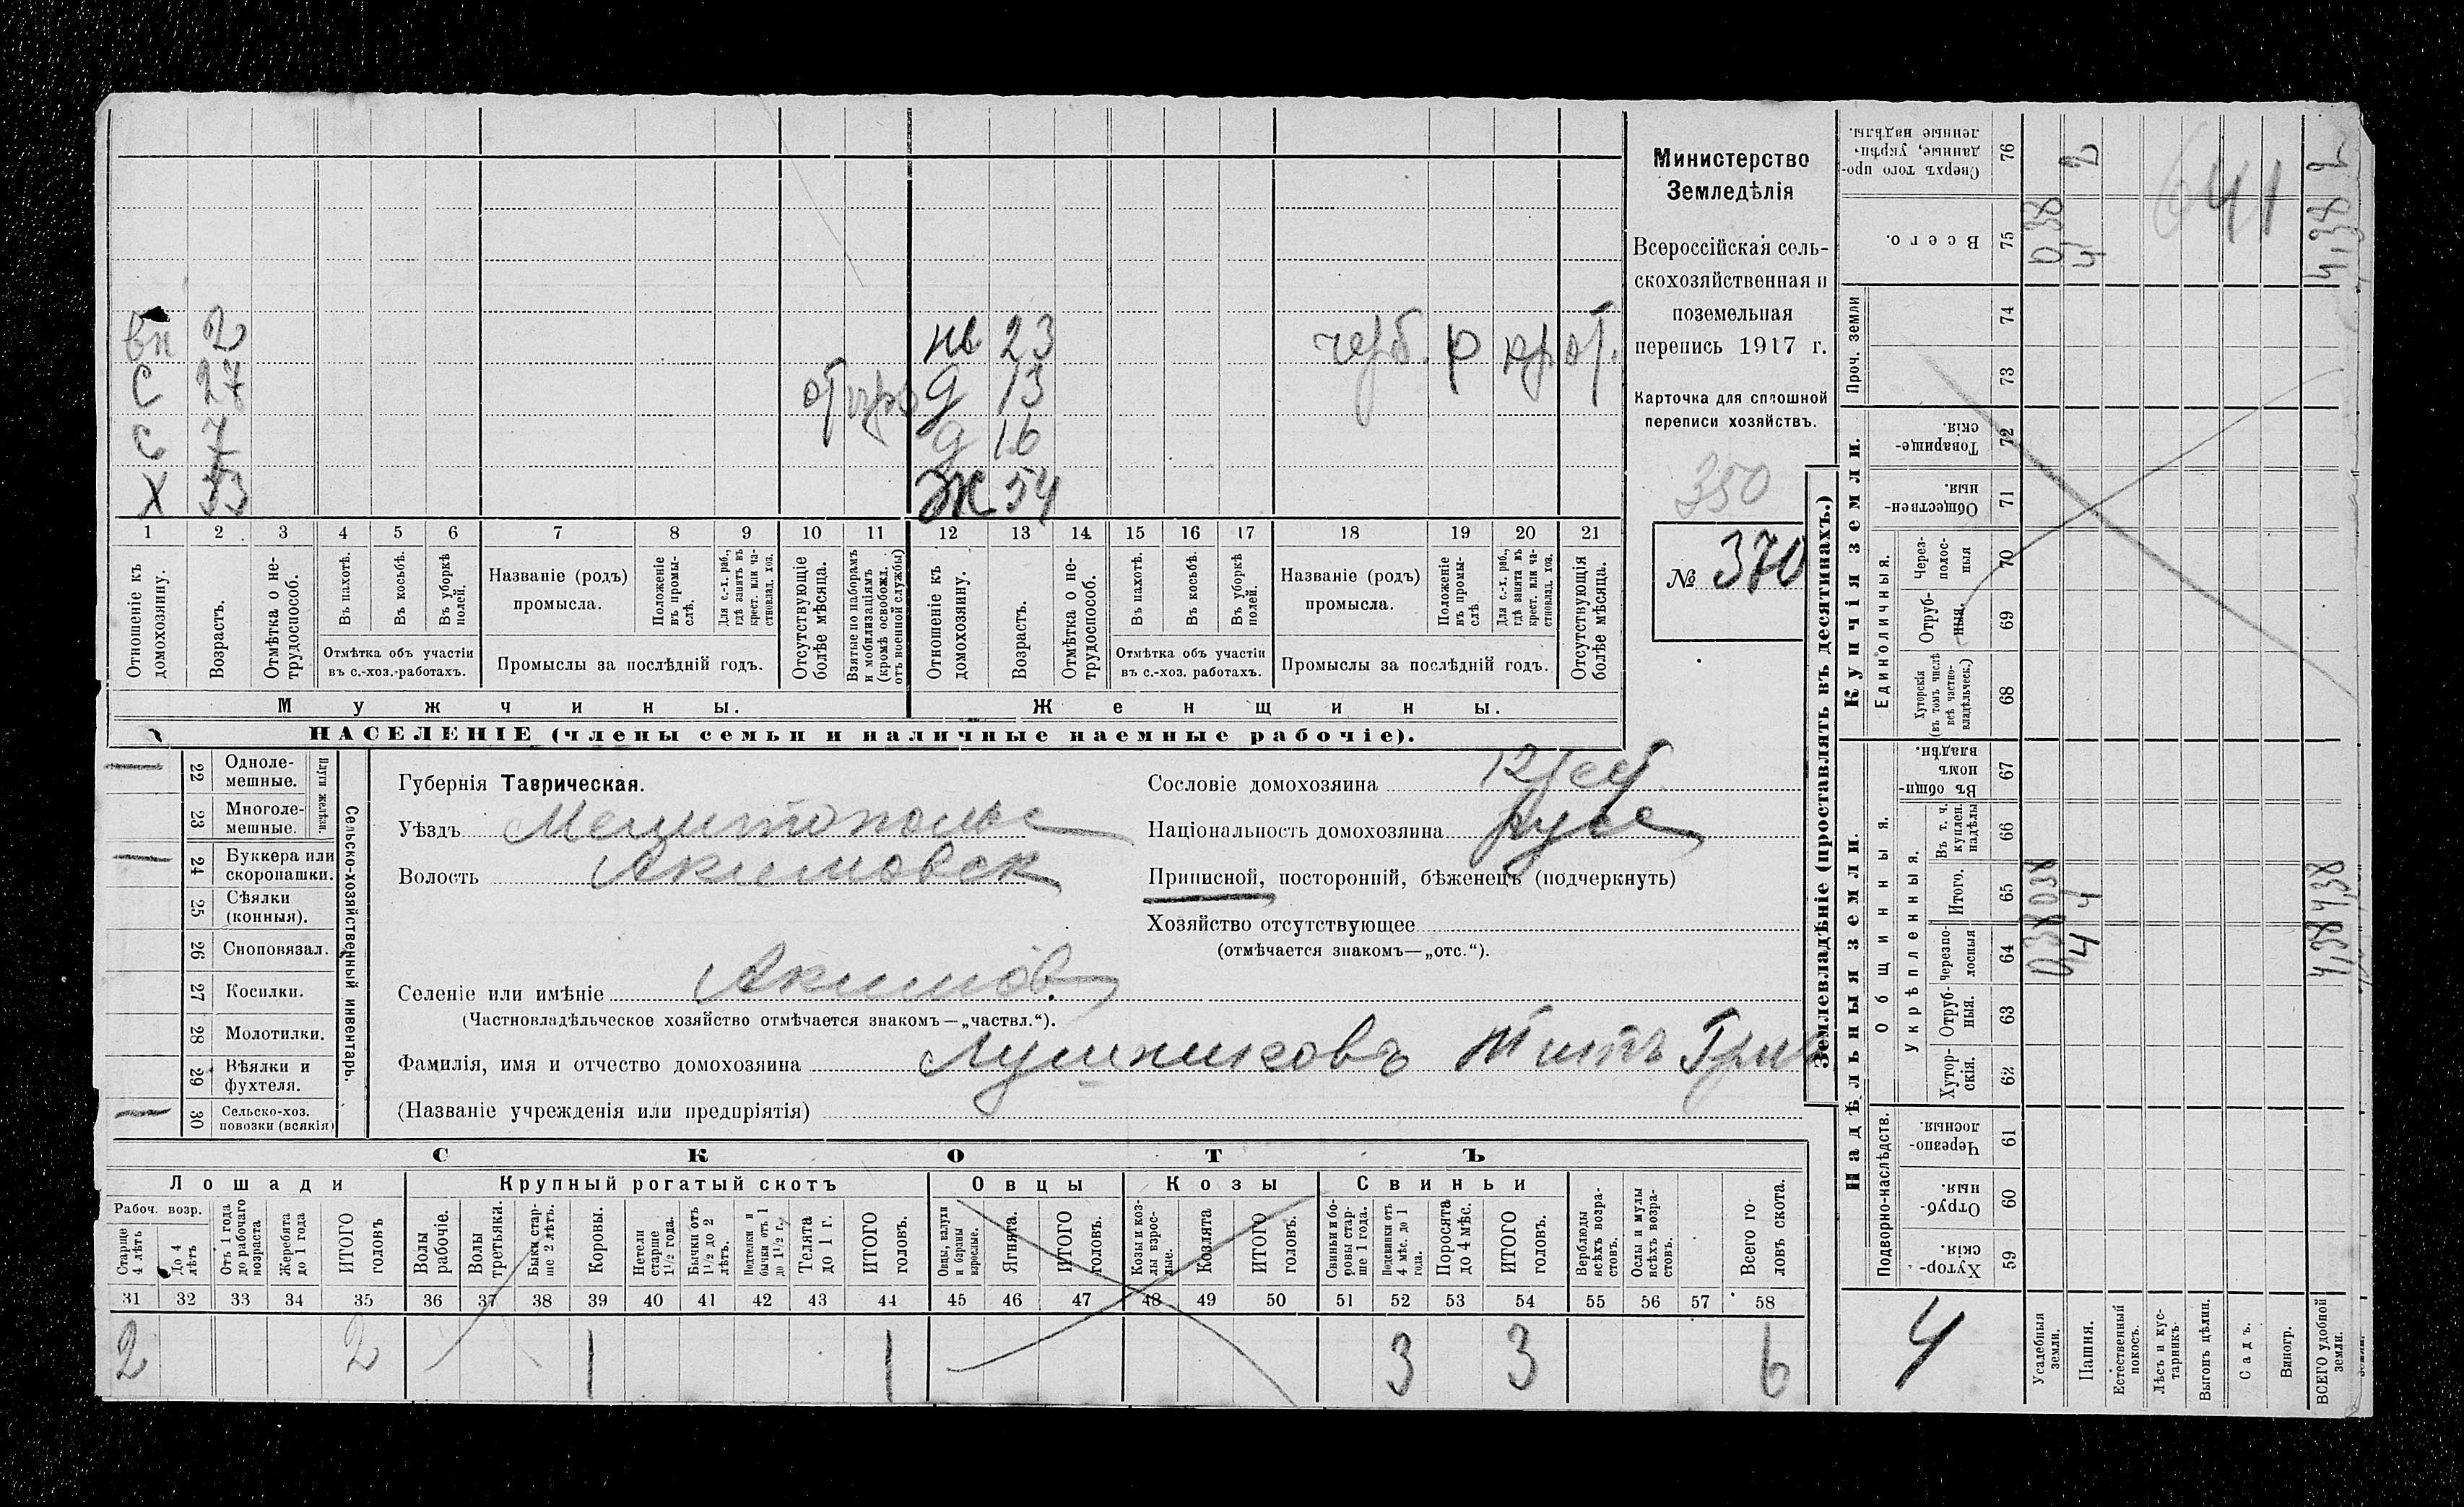 вп 2 нв 23 черб. р кр от.
С 27 от д 13
С 7 д 16
Х 53 Ж 54
1 2 3 4 5 6 7 8 9 10 11 12 13 14 15 16 17 18 19 20 21
Отношеніе къ домохозяину.
Возрастъ.
Отмѣтка о не-
трудоспособ.
Въ пахотѣ.
Въ косьбѣ.
Въ уборкѣ полей.
Отмѣтка объ участіи
въ с.-хоз.-работахъ.
Названіе (родъ)
промысла.
Положеніе въ промы-
слѣ.
Для с.-х. раб.,
гдѣ занятъ въ
крест. или ча-
стновлад. хоз.
Промыслы за послѣдній годъ.
Отсутствующіе
болѣе мѣсяца.
Взятые по наборамъ
и мобилизаціямъ
(кромѣ освобожд.
отъ военной службы)
Отношеніе къ
домохозяину.
Возрастъ.
Отмѣтка о не-
трудоспособ.
Въ пахотѣ.
Въ косьбѣ.
Въ уборкѣ
полей.
Отмѣтка объ участіи
въ с.-хоз. работахъ.
Названіе (родъ)
промысла.
Положеніе
въ промы-
слѣ.
Для с.-х. раб.,
гдѣ занята въ
крест. или ча-
стновлад. хоз.
Промыслы за послѣдній годъ.
Отсутствующія
болѣе мѣсяца.
Мужчины.
Женщины.
НАСЕЛЕНІЕ (члены семьи и наличные наемные рабочіе).
Министерство
Земледѣлія
Всероссійская сель-
скохозяйственная и
поземельная
перепись 1917 г.
Карточка для сплошной
переписи хозяйствъ.
350
№ 370
22 Однолe-
мешные.
23 Многоле-
мешные.
Плуги желѣзн.
24 Буккера или
скоропашки.
25 Сѣялки
(конныя).
26 Сноповязал.
27 Косилки.
28 Молотилки.
29 Вѣялки и
фухтеля.
30 Сельско-хоз.
повозки (всякія)
Сельско-хозяйственный инвентарь.
Губернія Таврическая.
Уѣздъ Мелитопольс
Волость Акимовск
Селеніе или имѣніе Акимов
(Частновладѣльческое хозяйство отмѣчается знакомъ—„частвл.“).
Фамилія, имя и отчество домохозяина Лушниковъ Титъ Григ
(Названіе учрежденія или предпріятія)
Сословіе домохозяина Крест
Національность домохозяина русс
Приписной, посторонній, бѣженецъ (подчеркнуть)
Хозяйство отсутствующее
(отмѣчается знакомъ—„отс.“).
СКОТЪ
Лошади
Крупный рогатый скотъ
Овцы
Козы
Свиньи
Рабоч. возр.
Старше
4 лѣтъ
До 4
лѣтъ
Отъ 1 года
до рабочаго
возраста
Жеребята
до 1 года
ИТОГО
головъ
Волы
рабочіе.
Волы
третьяки.
Быки стар-
ше 2 лѣтъ.
Коровы.
Нетели
старше
1½ года.
Бычки отъ
1½ до 2
лѣтъ.
Подтелки и
бычки отъ 1
до 1½ г.
Телята
до 1 г.
ИТОГО
головъ.
Овцы, валухи
и бараны
взрослые.
Ягнята.
ИТОГО
головъ.
Козы и коз-
лы взрос-
лые.
Козлята
ИТОГО
головъ.
Свиньи и бо-
ровы стар-
ше 1 года.
Подсвинки отъ
4 мѣс. до 1
года.
Поросята
до 4 мѣс.
ИТОГО
головъ.
Верблюды
всѣхъ возра-
стовъ.
Ослы и мулы
всѣхъ возра-
стовъ.
Всего го-
ловъ скота.
31 32 33 34 35 36 37 38 39 40 41 42 43 44 45 46 47 48 49 50 51 52 53 54 55 56 57 58
2 2 1 1 3 3 6
Землевладѣніе (проставлять въ десятинахъ.)
Надѣльныя земли.
Купчія земли.
Проч. земли
Подворно-наслѣдств.
Общинныя.
Укрѣпленныя.
Единоличныя.
Сверхъ того про-
данные, укрѣп-
ленные надѣлы.
76
Всего.
75
74
73
Товарище-
скія.
72
Обществен-
ныя.
71
Через-
полос-
ныя
70
Отруб-
ныя.
69
Хуторскія
(въ томъ числѣ
всѣ частно-
владѣльческ.)
68
Въ общи-
номъ
владѣн.
67
Въ т. ч.
куплен.
надѣлы
66
Итого.
65
Черезпо-
лосныя
64
Отруб-
ныя.
63
Хутор-
скія.
62
Черезпо-
лосныя.
61
Отруб-
ныя.
60
Хутор-
скія.
59
4
Усадебныя
земли.
038 038 038
Пашня.
4 4 4 2
Естественный
покосъ.
Лѣсъ и кус-
тарникъ.
Выгонъ цѣлин.
Садъ.
Виногр.
641
ВСЕГО удобной
земли.
4,38 4,38 4,38 2